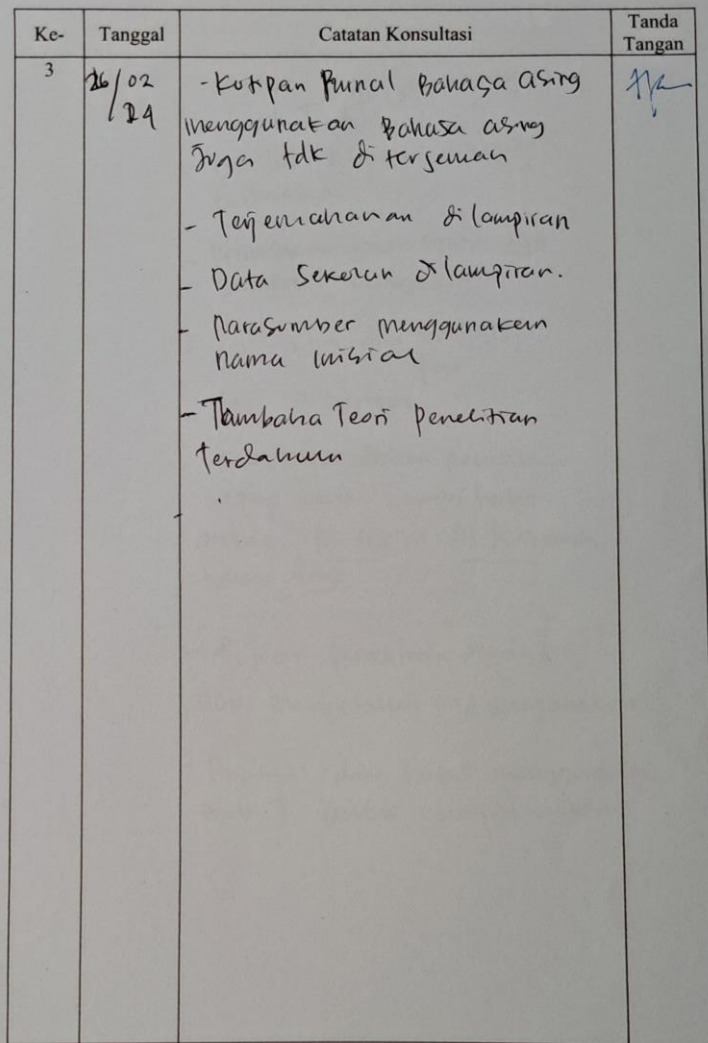 Ke- Tanggal Catatan Konsultasi Tanda Tangan
3 26/02/24 - Kutipan Jurnal Bahasa asing
menggunakan Bahasa asing
Juga tdk diterjemah
- Terjemahanan dilampiran
- Data Sekolah dilampiran.
- Narasumber menggunakan
nama inisial
- Tambaha Teori penelitian
terdahulu
-